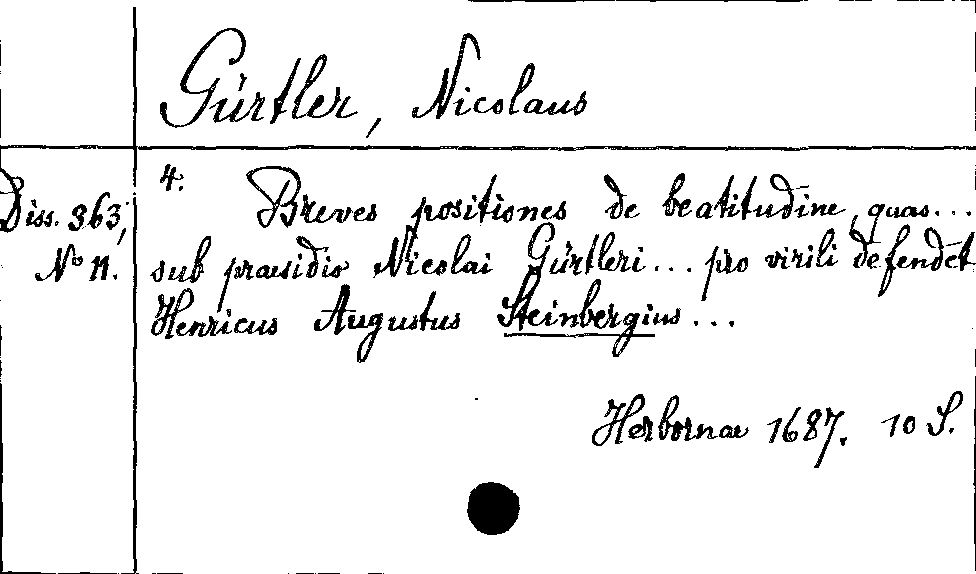 Gürtler, Nicolaus
4.
Diss. 363,
No 11.
Breves positiones de beatitudine, quas...
sub praesidio Nicolai Gürtleri... pro virili defendet
Henricus Augustus Steinbergius...
Herbornae 1687. 10 S.